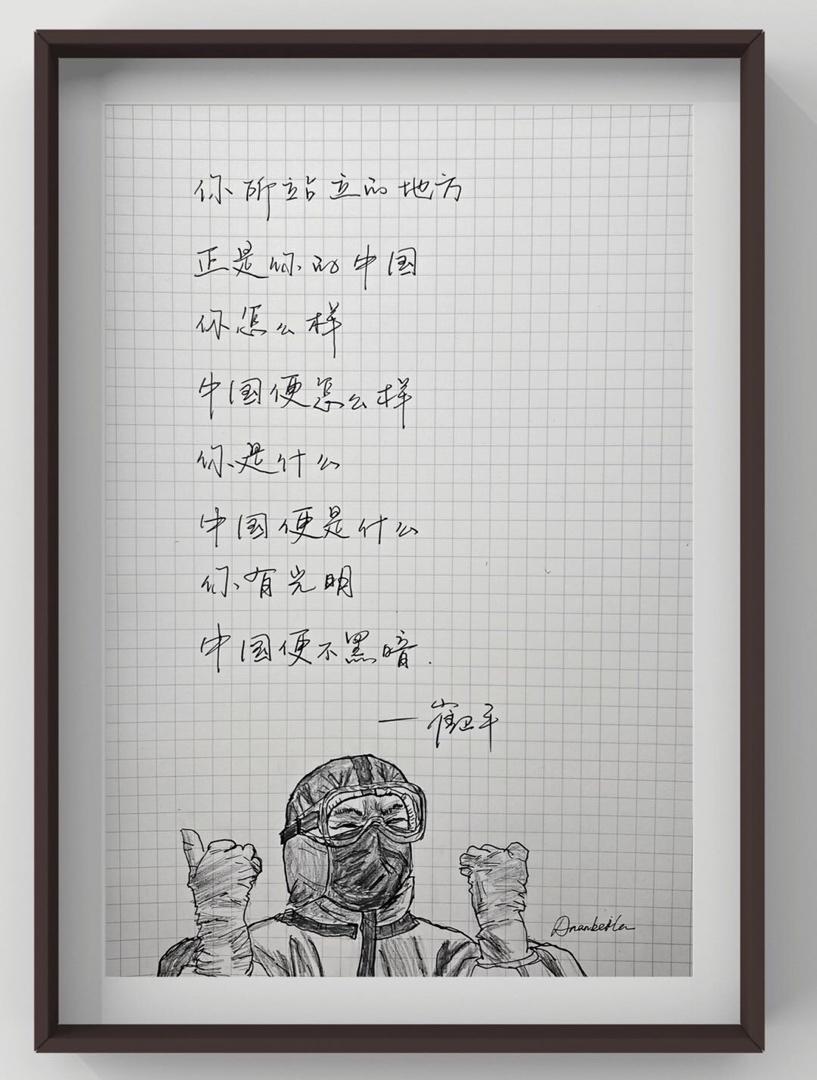 你所站立的地方
正是你的中国
你怎么样
中国便怎么样
你是什么
中国便是什么
你有光明
中国便不黑暗.
—崔卫平